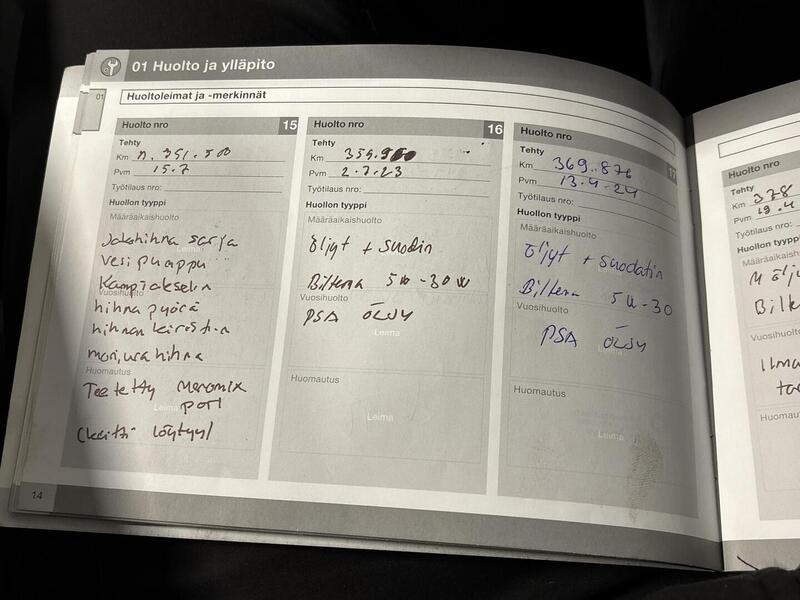 01 Huolto ja ylläpito
01
Huoltoleimat ja -merkinnät
Huolto nro 15
Tehty
Km n. 351.500
Pvm 15.7
Työtilaus nro:
Huollon tyyppi
Määräaikaishuolto
Jakohihna sarja
Leima
vesi pumppu
Kampiakselin
Vuosihuolto
hihna pyörä
hihnan kiristin
moniura hihna
Huomautus
Teetetty Meromix
Leima
pori
(kuitti löytyy)
14
Huolto nro 16
Tehty
Km
Pvm 2.7.23
Työtilaus nro:
Huollon tyyppi
Määräaikaishuolto
öljyt + suodin
Leima
Biltema 5w-30w
Vuosihuolto
PSA ÖLJY
Leima
Huomautus
Leima
Huolto nro 17
Tehty
Km 369.876
Pvm 13.4-24
Työtilaus nro:
Huollon tyyppi
Määräaikaishuolto
öljyt + suodatin
Leima
Biltema 5W-30
Vuosihuolto
PSA ÖLJY
Leima
Huomautus
Leima
Huolto nro
Tehty
Km 378
Pvm 19.4
Työtilaus nro:
Huollon tyyppi
Määräaikaish
Vuosihuolto
Huomautu